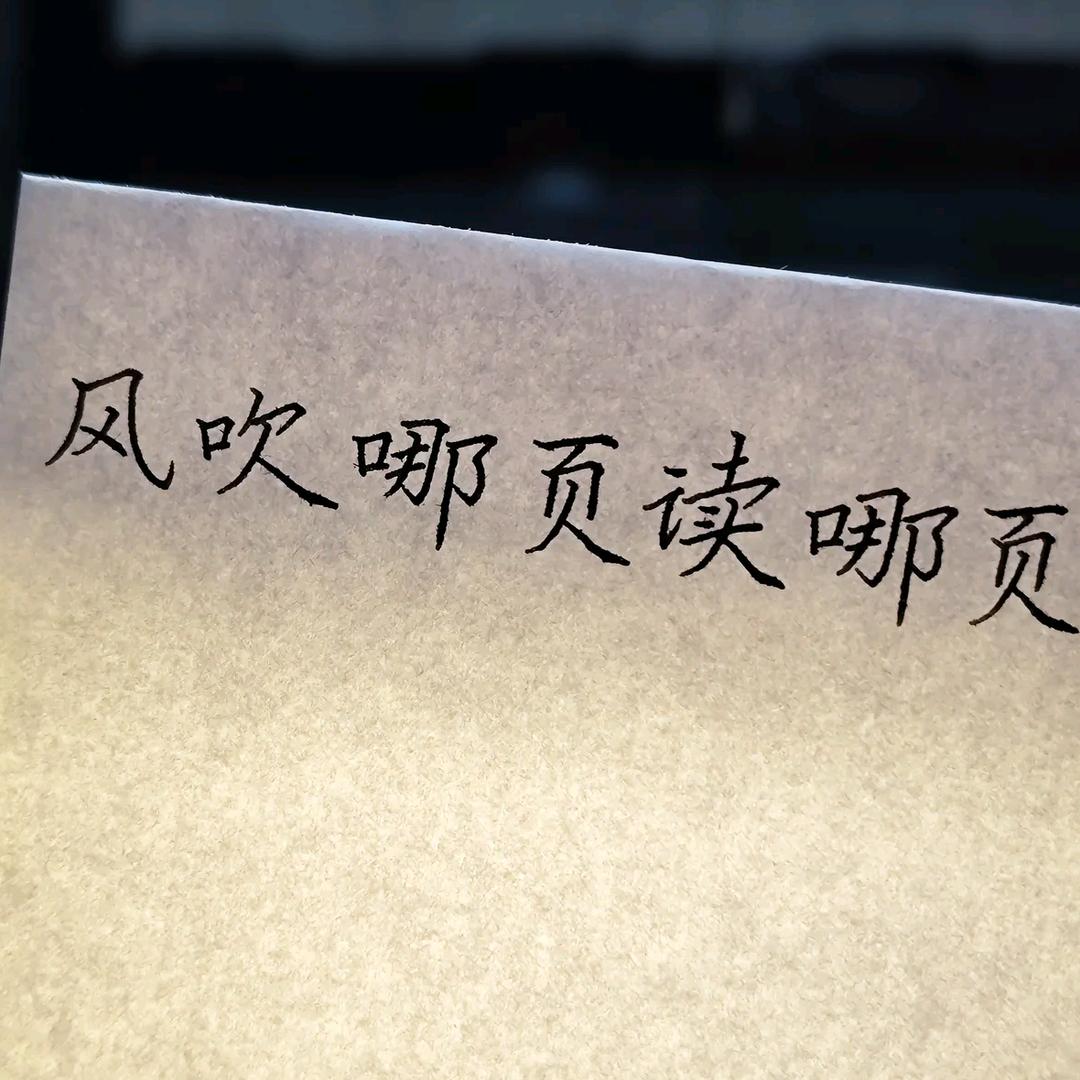 风吹哪页读哪页